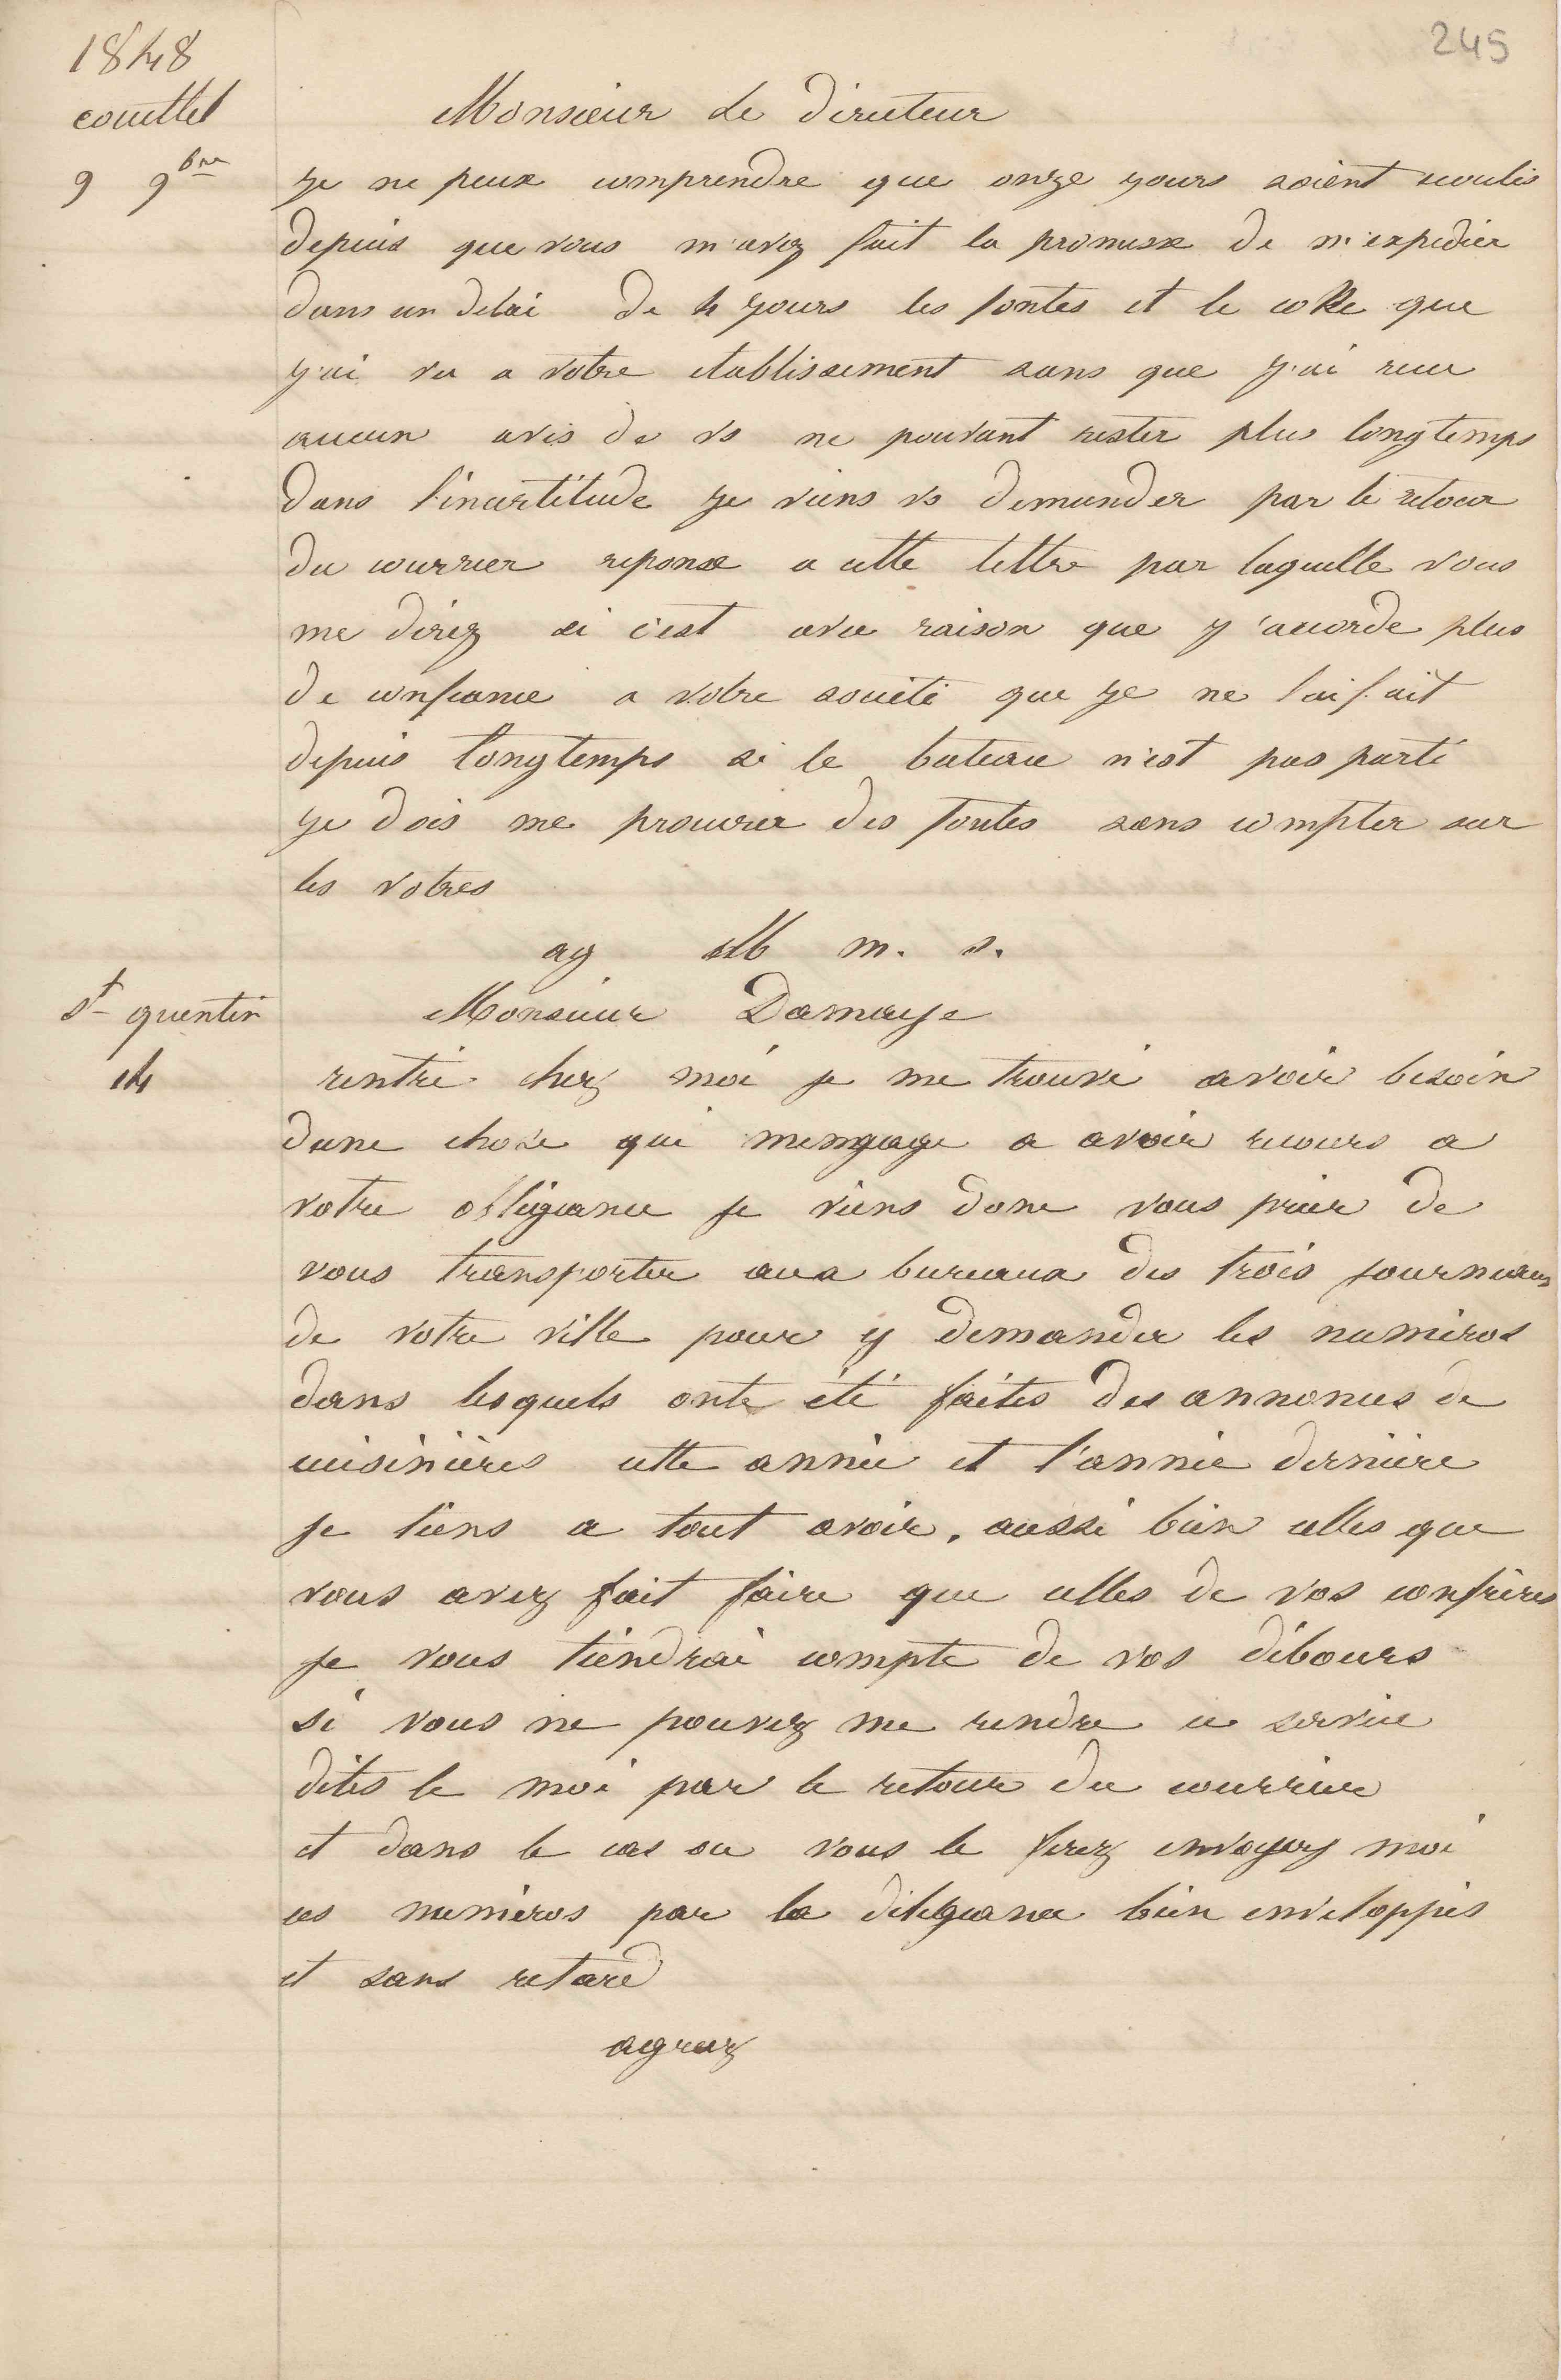 245
1848
couillet
9 9bre
Monsieur Le directeur
je ne peux comprendre que onze jours soient ecoulés
depuis que vous m'avez fait la promesse de m'expedier
dans un delai de 4 jours les fontes et le coke que
j'ai vu a votre etablissement sans que j'ai recu
aucun avis de vs ne pouvant rester plus longtemps
dans l'incertitude je viens vs demander par le retour
du courrier reponse a cette lettre par laquelle vous
me direz si c'est avec raison que j'accorde plus
de confiance a votre société que je ne l'ai fait
depuis longtemps si le bateau n'est pas parti
je dois me procurer des fontes sans compter sur
les votres
ag M m. s.
St quentin
14
Monsieur Damaye
rentré chez moi je me trouve avoir besoin
dune chose qui mengage a avoir recours a
votre obligeance je viens donc vous prier de
vous transporter aux bureaux des trois journeaux
de votre ville pour y demander les numéros
dans lesquels onte été faites des annonces de
cuisinières cette année et l'année dernière
je tiens a tout avoir, aussi bien celles que
vous avez fait faire que celles de vos confrères
je vous tiendrai compte de vos débours
si vous ne pouvez me rendre ce service
dites le moi par le retour du courrier
et dans le cas ou vous le ferez envoyez moi
ces numéros par la diligeance bien enveloppés
et sans retard
agreez